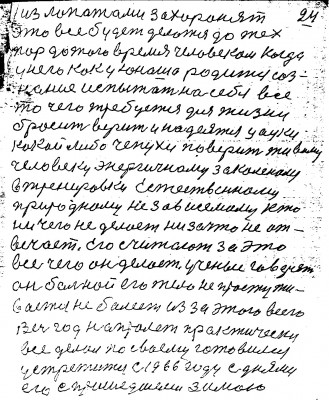 24
из лопатами захоронят
Это все будет делотся до тех
пор до того время человеком когда
у него как у юноша родится соз-
нание испытат на себя все
то чего требуется для жизни
бросит верит и надеятся у ауки
какой либо чепухи поверит живому
человеку энергичному закаленому
в тренировки Естественному
природному независемому кто
ничего не делает ни за что не от-
вечает. Его считают за это
все чего он делает ученые говорят
он болной его тело не простужи-
вается не болеет из за этого всего
год на пролет практически
все делал по своему готовился
устретить с 1966 году с днями
его с пришедшею зимою